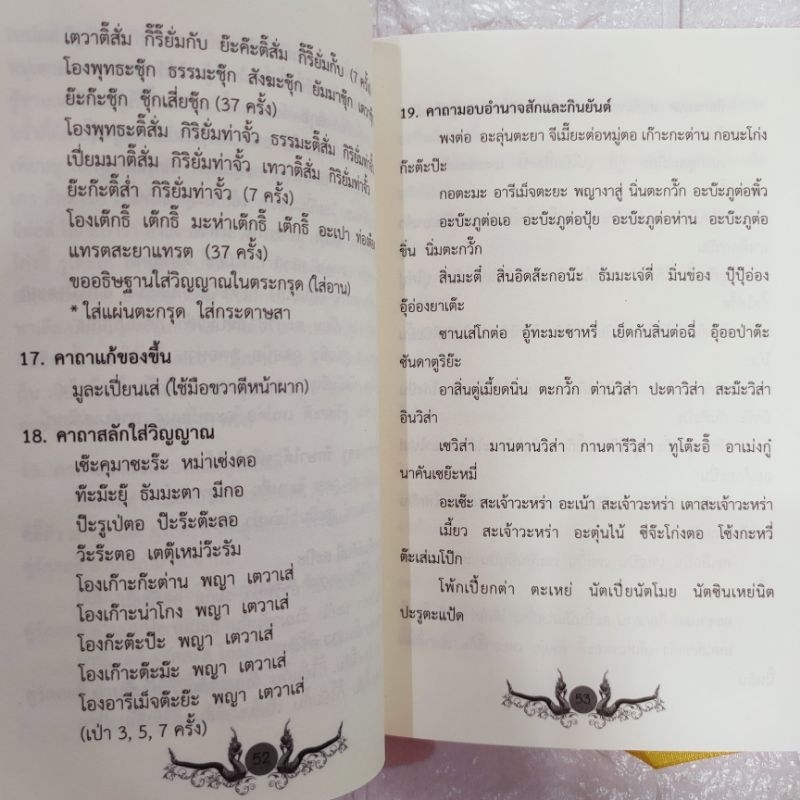 เตวาติ๊สั่ม กิ๊ริยั่มกับ ย๊ะค๊ะติ๊สั่ม กิ๊ริยั่มกั๊บ (7 ครั้ง)
โองพุทธะซุ๊ก ธรรมะซุ๊ก สังฆะซุ๊ก ยัมมาซุ๊ก
ย๊ะก๊ะซุ๊ก ซุ๊กเสี่ยซุ๊ก (37 ครั้ง)
โองพุทธะติ๊สั่ม กิริยั่มท่าจั้ว ธรรมะติ๊สั่ม กิริยั่มท่าจั้ว
เปี่ยมมาติ๊สั่ม กิริยั่มท่าจั้ว เทวาติ๊สั่ม กิริยั่มท่าจั้ว
ย๊ะก๊ะติ๊สำ่ กิริยั่มท่าจั้ว (7 ครั้ง)
โองเต๊กธิ๊ เต๊กธิ๊ มะห่าเต๊กธิ๊ เต๊กธิ๊ อะเปา
แทรตสะยาแทรต (37 ครั้ง)
ขออธิษฐานใส่วิญญาณในตระกรุด (ใส่อาน)
* ใส่แผ่นตะกรุด ใส่กระดาษสา
17. คาถาแก้ของขึ้น
มูละเปี่ยนเส่ (ใช้มือขวาตีหน้าผาก)
18. คาถาสลักใส่วิญญาณ
เซ๊ะคุมาซะร๊ะ หม่าเซ่งดอ
ท๊ะม๊ะยุ๊ ธัมมะตา มีกอ
ป๊ะรูเป่ตอ ป๊ะร๊ะต๊ะลอ
ว๊ะร๊ะตอ เตตุ๊เหม่ว๊ะรัม
โองเก๊าะก๊ะต่าน พญา เตวาเส่
โองเก๊าะน่าโกง พญา เตวาเส่
โองก๊ะต๊ะป๊ะ พญา เตวาเส่
โองเก๊าะต๊ะม๊ะ พญา เตวาเส่
โองอารีเม็จต๊ะย๊ะ พญา เตวาเส่
(เป่า 3, 5, 7 ครั้ง)
52
19. คาถามอบอำนาจสักและกินยันต์
พงต่อ อะลุ่นตะยา จีเมี๊ยะต่อหมู่ตอ เก๊าะกะต่าน กอนะโก่ง
ก๊ะต๊ะป๊ะ
กอตะมะ อารีเม็จตะยะ พญางาสู่ นิ่นตะกวั๊ก อะบ๊ะภูต่อพิ้ว
อะบ๊ะภูต่อเอ อะบ๊ะภูต่อปุ้ย อะบ๊ะภูต่อห่าน อะบ๊ะภูต่อ
ชิ่น นิ่มตะกวั๊ก
สิ่นมะตี่ สิ่นอิดส๊ะกอน๊ะ ธัมมะเจ่ดี่ มิ่นช่อง ปุ๊ปุ๊อ่อง
อุ๊อ่องยาเต๊ะ
ซานเส่โกต่อ อู้ทะมะซาหรี่ เย็ตกันสิ่นต่อฉี่ อุ๊ออป่าต๊ะ
ซันดาตูริย๊ะ
อาสิ่นตู่เมี้ยดนิ่น ตะกวั๊ก ต่านวิส่า ปะตาวิส่า สะม๊ะวิส่า
อินวิส่า
เซวิส่า มานตานวิส่า กานตารีวิส่า ทูโต๊ะอิ๊ อาเม่งกู๋
นาคันเซย๊ะหมี่
อะเซ๊ะ สะเจ้าวะหร่า อะเน้า สะเจ้าวะหร่า เตาสะเจ้าวะหร่า
เมี้ยว สะเจ้าวะหร่า อะตุ๋นไน้ ซีจ๊ะโก่งตอ โซ้งกะหวี่
ต๊ะเส่เมโป๊ก
โพ้กเปี้ยกต่า ตะเหย่ นัตเปี่ยนัตโมย นัตซินเหย่นิต
ปะรูตะแป้ด
53